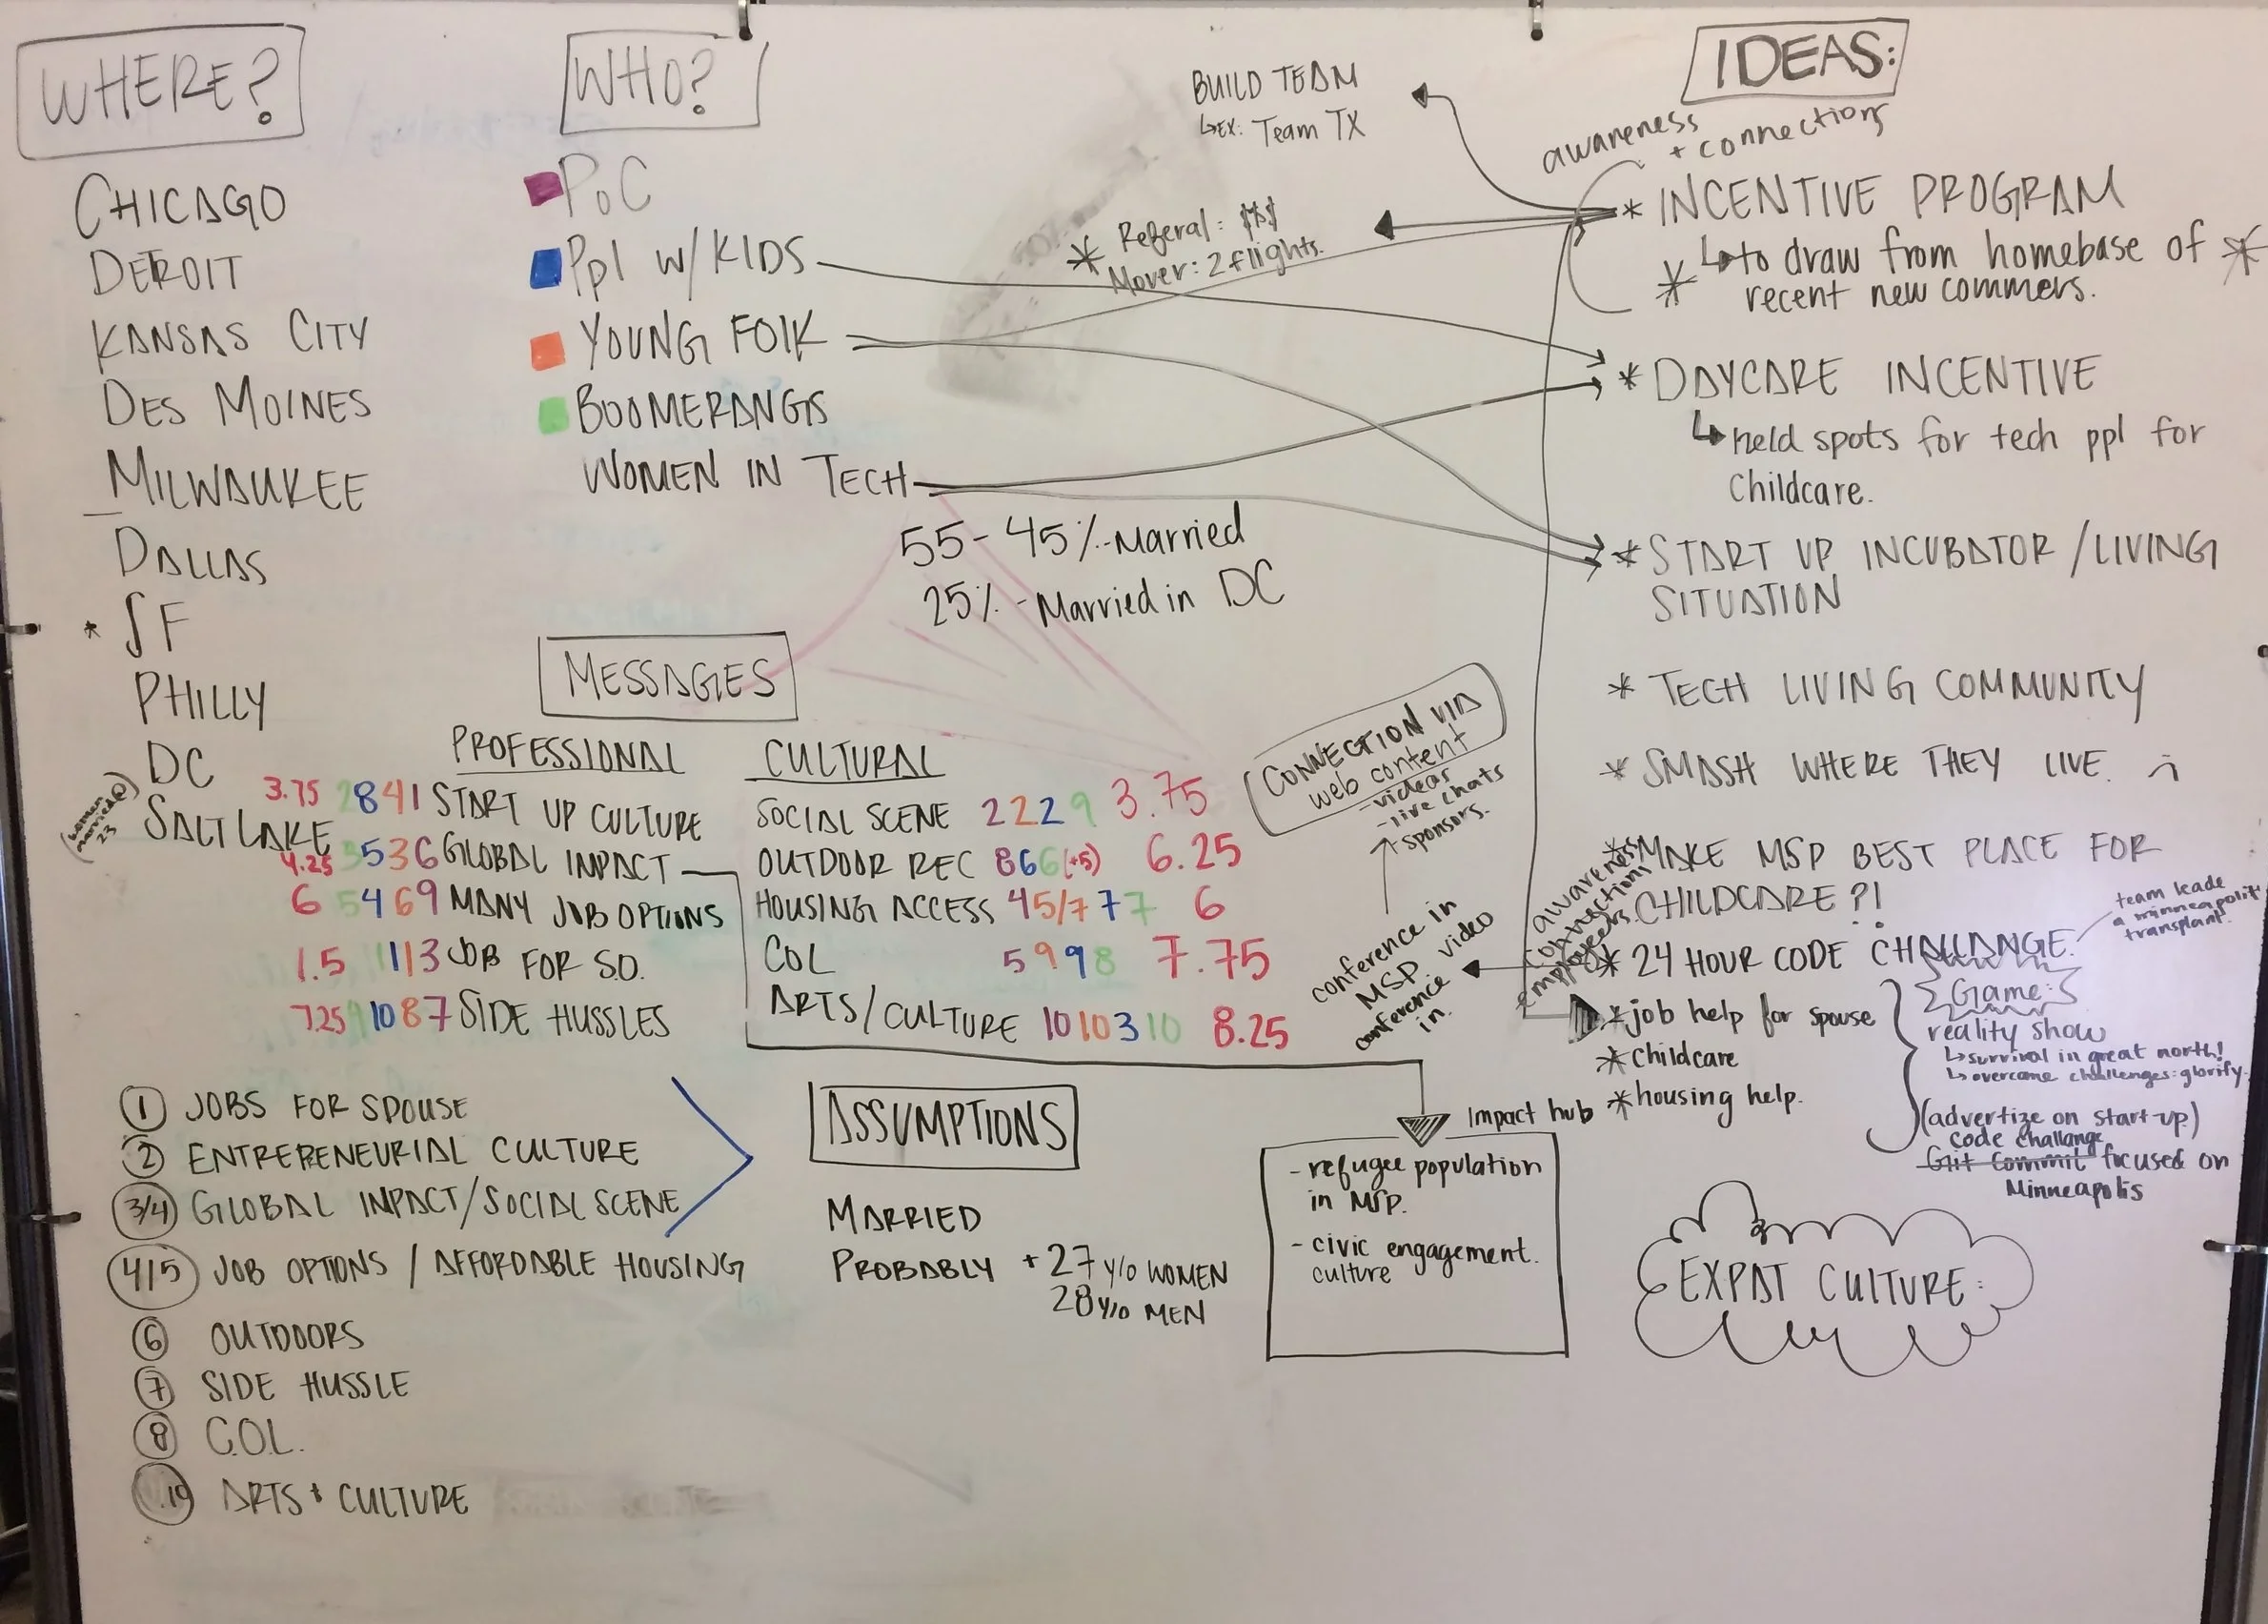 WHERE?
CHICAGO
DETROIT
KANSAS CITY
DES MOINES
MILWAUKEE
DALLAS
* SF
PHILLY
DC
SALT LAKE
married
23
WHO?
PoC
Ppl w/ KIDS
YOUNG FOlK
BOOMERANGS
WOMEN IN TECH
55-45%-Married
25% - Married in DC
BUILD TEAM
↳EX: Team TX
* Referal: $$$
Mover: 2 flights.
MESSAGES
PROFESSIONAL
3.75 2841 START UP CULTURE
4.25 3536 GLOBAL IMPACT
6 5469 MANY JOB OPTIONS
1.5 1113 JOB FOR S.O.
7.25 9 10 8 7 SIDE HUSSLES
CULTURAL
SOCIAL SCENE 2229 3.75
OUTDOOR REC 866(+5) 6.25
HOUSING ACCESS 45/7 7 7 6
COL 5998 7.75
ARTS/CULTURE 10 10 3 10 8.25
CONNECTION VIA
web content
- videos
- live chats
- sponsors.
conference in
MSP. video
conference
in.
1 JOBS FOR SPOUSE
2 ENTREPRENEURIAL CULTURE
3/4 GLOBAL IMPACT/SOCIAL SCENE
4/5 JOB OPTIONS / AFFORDABLE HOUSING
6 OUTDOORS
7 SIDE HUSSLE
8 C.O.L.
10 ARTS & CULTURE
ASSUMPTIONS
MARRIED
PROBABLY + 27 Y/O WOMEN
28 Y/O MEN
Impact hub
- refugee population
in MSP.
- civic engagement
culture
IDEAS:
awareness
+ connections
* INCENTIVE PROGRAM
↳to draw from homebase of *
* recent new commers.
* DAYCARE INCENTIVE
↳held spots for tech ppl for
Childcare.
* START UP INCUBATOR /LIVING
SITUATION
* TECH LIVING COMMUNITY
* SMASH WHERE THEY LIVE
* MAKE MSP BEST PLACE FOR
CHILDCARE?!
awareness
connections
employeers.
* 24 HOUR CODE CHALLANGE.
team leade
a minneapolis
transplant.
* job help for spouse
* Childcare
* housing help.
Game:
reality show
↳survival in great north!
↳overcome challenges: glorify.
(advertize on start-up)
code challange
Git Commit focused on
Minneapolis
EXPAT CULTURE: